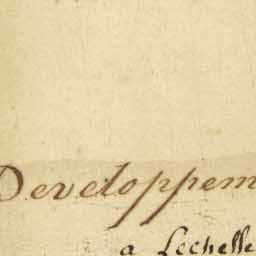 Developpem
a Lechelle